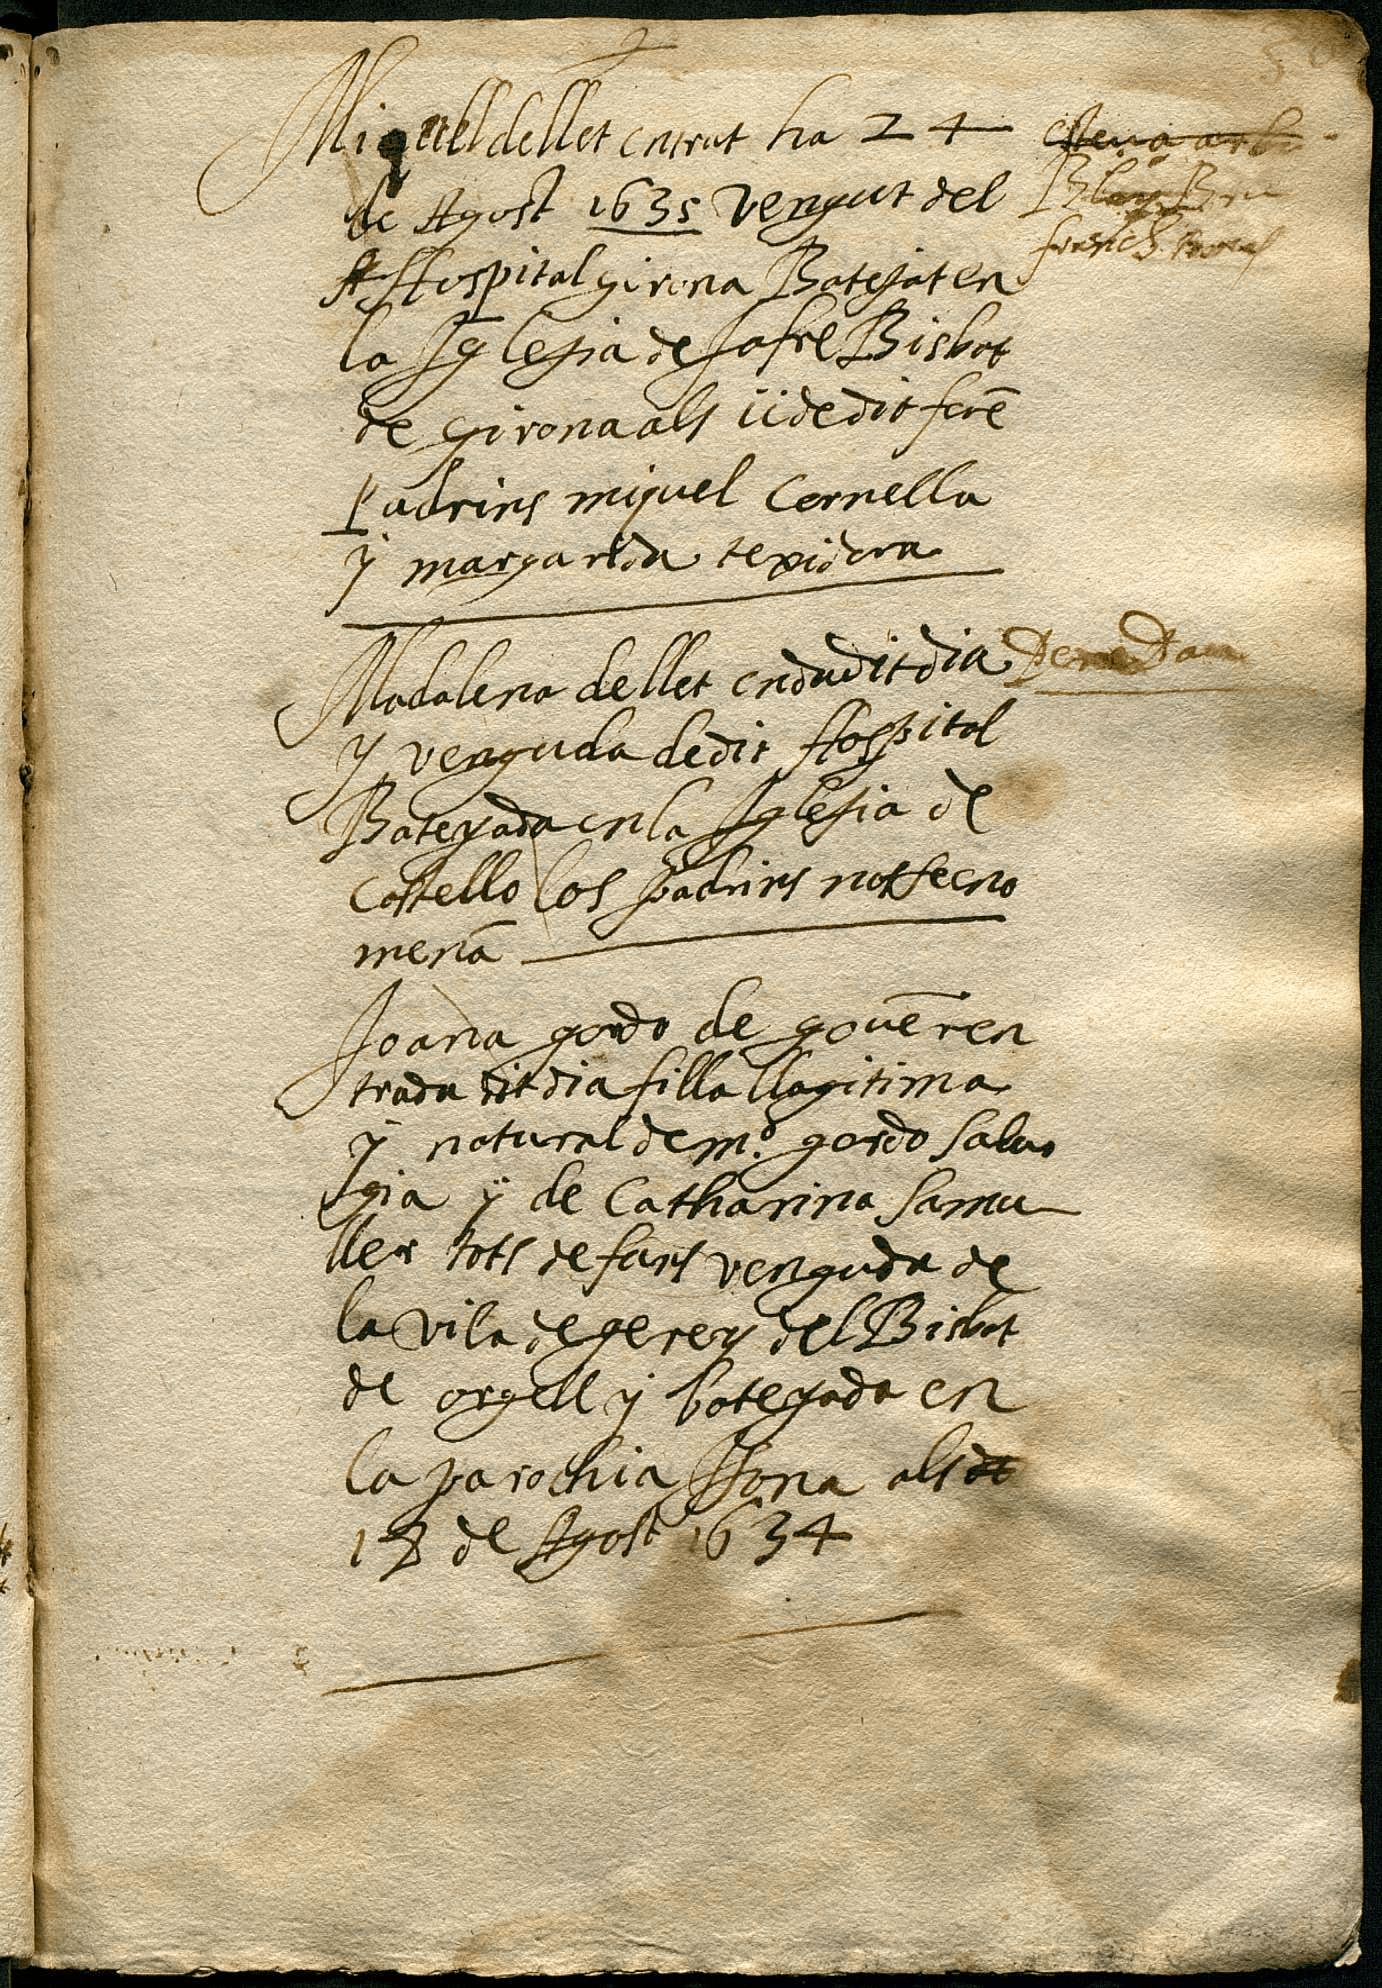 Miquel de llet entrat ha 24
de Agost 1635 vengut del
Hospital girona Batejat en
la Iglesia de Jafre Bisbat
de girona als ii de dit feré
Padrins miquel Cornella
y margarida texidora
Madalena de llet en du dit dia
y venguda de dit Hospital
Bateyada en la Iglesia de
Castello los padrins not se cno
menã
Joana gordo de gouẽr en
trada dit dia filla llagitima
y natural de m.º gordo
y de Catharina sa mu
ller tots de fars venguda de
la vila de gerey del Bisbat
de orgell y bateyada en
la parochia als
18 de Agost 1634